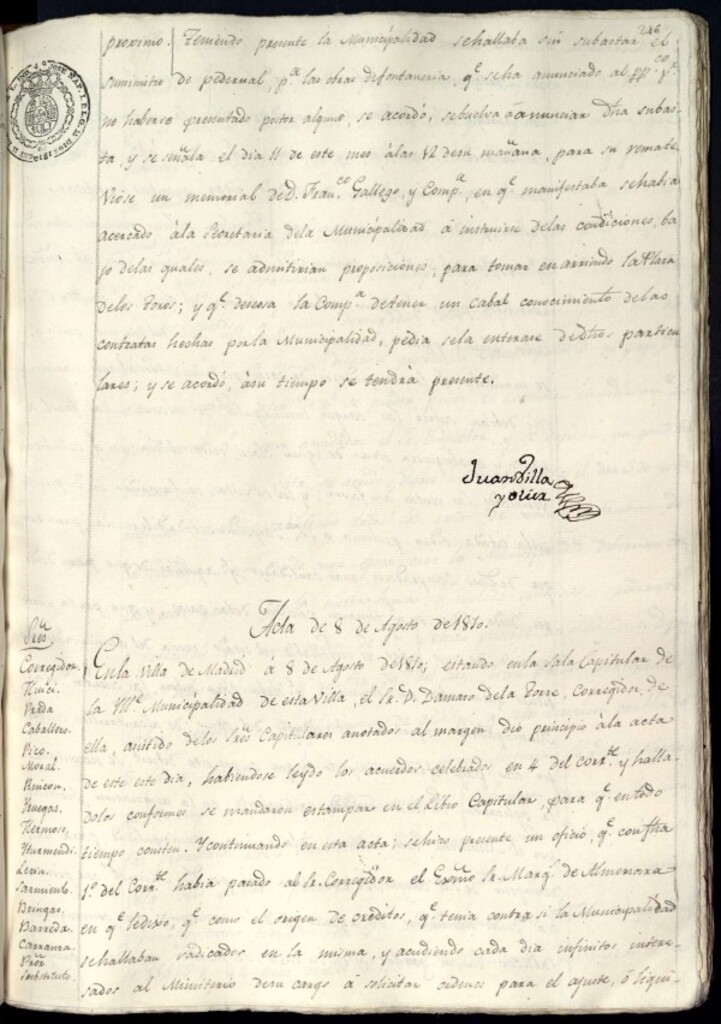 246
proximo. Teniendo presente la Municipalidad sehallaba sin subastar el
suministro de pedernal, pª las obras defontaneria, qᵉ seha anunciado al ppᶜᵒ y
no haberse presentado postor alguno, se acordó, sebuelva à anunciar dha subas-
ta, y se señala el dia 11 de este mes àlas 12 desu mañana, para su remate.
Viose un memorial de D. Franᶜᵒ Gallego, y Compª, en qᵉ manifestaba sehabia
acercado àla Secretaria dela Municipalidad á instruirse delas condiciones, ba-
jo delas quales, se admitirian proposiciones, para tomar en arriendo la Plaza
delos Toros; y qᵉ deseosa la Compª detener un cabal conocimiento delas
contratas hechas por la Municipalidad, pedia sela enterase de dhos particu
lares; y se acordó, àsu tiempo se tendrá presente.
Juan Villa
y Olier
Acta de 8 de Agosto de 1810.
Sʳᵉˢ
Corregidor.
Prada
Caballero.
Pico.
Moral.
Rincon.
Huegas.
Hermoso,
Yturmendi.
Leria.
Sarmiento.
Bringas.
Barreda.
Carranza.
Prʳ
Substituto.
En la Villa de Madrid á 8 de Agosto de 1810; estando en la Sala Capitular de
la Mᵉ Municipalidad de esta Villa, el Sr. D. Damaso dela Torre, Corregidor de
ella, asistido delos Sʳᵉˢ Capitulares anotados al margen dio principio àla acta
de este este dia, habiendose leydo los acuerdos celebrados en 4 del corrᵗᵉ y halla-
dolos conformes se mandaron estampar en el Libro Capitular, para qᵉ en todo
tiempo consten. Y continuando en esta acta; sehizo presente un oficio, qᵉ con fha
1º del Corrᵗᵉ habia pasado al Sr. Corregidor el Exᵐᵒ Sr. Marqˢ de Almenara
en qᵉ ledixo, qᵉ como el origen de creditos, qᵉ tenia contra si la Municipalidad
sehallaban radicados en la misma, y acudiendo cada dia infinitos intere-
sados al Ministerio desu cargo á solicitar ordenes para el ajuste, ó liqui-